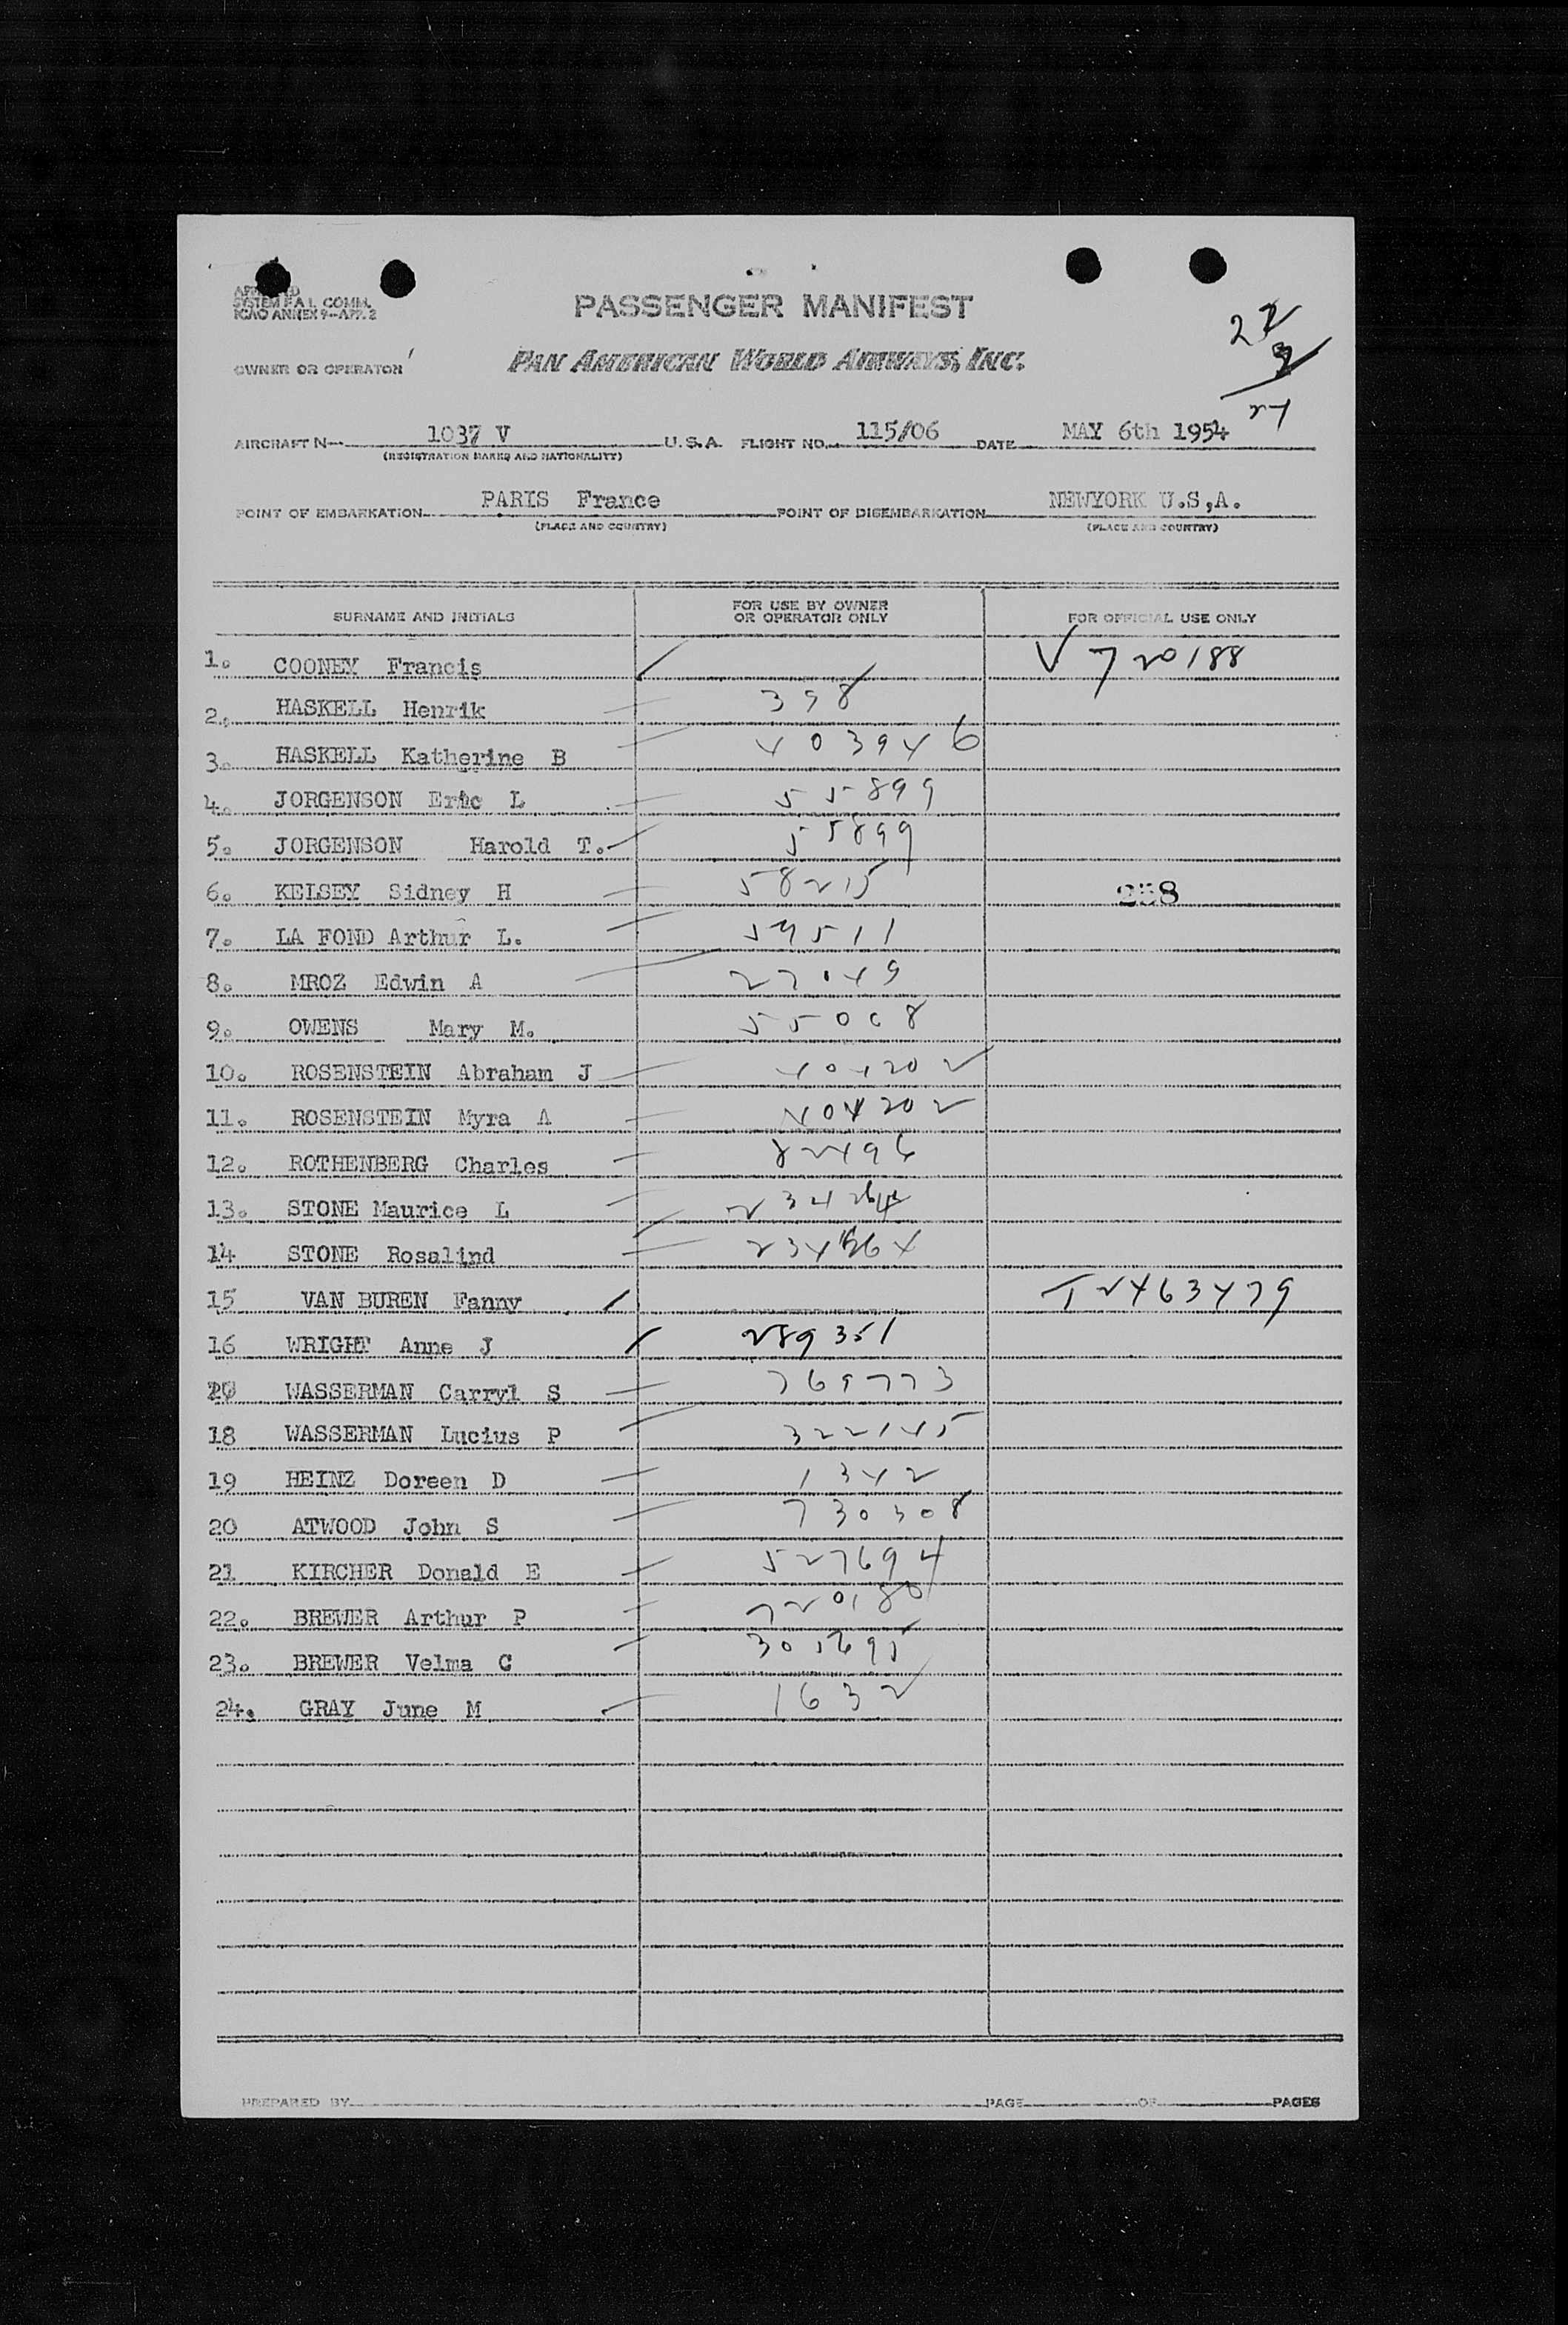 SYSTEM F.A.L. COMM.
ICAO ANNEX 9—APP. 2
PASSENGER MANIFEST
22
2
24
OWNER OR OPERATOR
PAN AMERICAN WORLD AIRWAYS, INC.
AIRCRAFT N— 1037 V U.S.A. FLIGHT NO. 115/06 DATE MAY 6th 1954
(REGISTRATION MARKS AND NATIONALITY)
POINT OF EMBARKATION PARIS France POINT OF DISEMBARKATION NEWYORK U.S,A.
(PLACE AND COUNTRY) (PLACE AND COUNTRY)
SURNAME AND INITIALS FOR USE BY OWNER OR OPERATOR ONLY FOR OFFICIAL USE ONLY
1. COONEY Francis V 720188
2. HASKELL Henrik 398
3. HASKELL Katherine B 403946
4. JORGENSON Eric L 55899
5. JORGENSON Harold T. 55899
6. KELSEY Sidney H 58215 258
7. LA FOND Arthur L. 59511
8. MROZ Edwin A 22049
9. OWENS Mary M. 55008
10. ROSENSTEIN Abraham J 404202
11. ROSENSTEIN Myra A 404202
12. ROTHENBERG Charles 82496
13. STONE Maurice L
14 STONE Rosalind
15 VAN BUREN Fanny T2463479
16 WRIGHT Anne J 289351
WASSERMAN Carryl S 769773
18 WASSERMAN Lucius P 322145
19 HEINZ Doreen D 1342
20 ATWOOD John S 730308
21 KIRCHER Donald E 527694
22. BREWER Arthur P 720180
23. BREWER Velma C
24. GRAY June M 1632
PREPARED BY PAGE OF PAGES